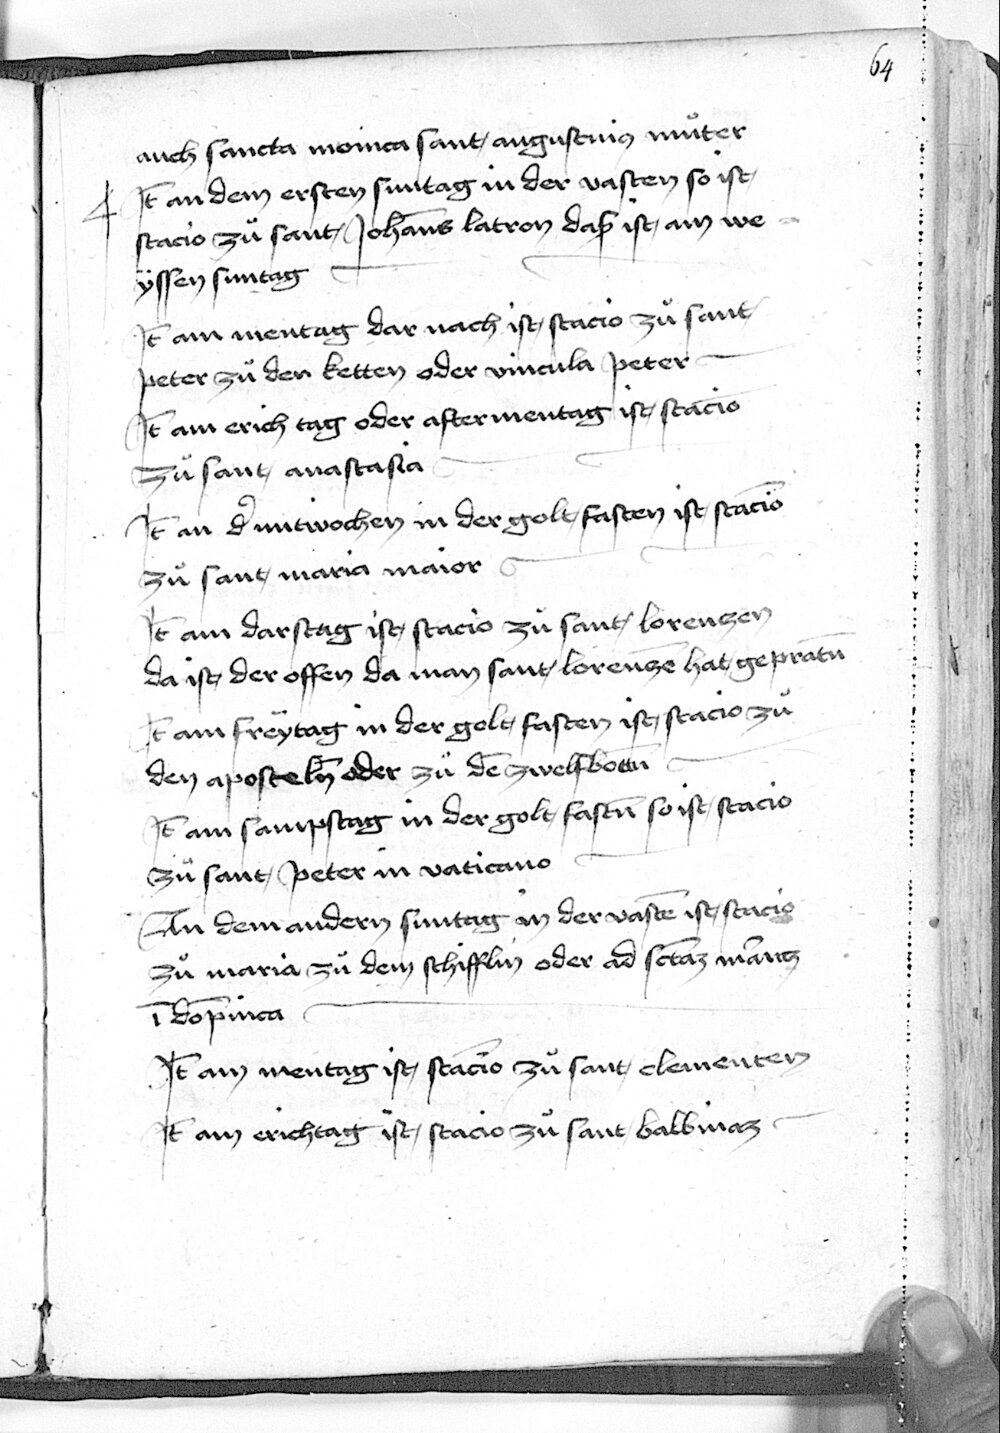 64
auch sancta monica sant augustinus můter
It an dem ersten suntag in der vasten so ist
stacio zů sant Johans latron daß ist am we
yssen suntag
It am mentag dar nach ist stacio zů sant
peter zů den ketten oder vincula peter
It am erich tag oder aftermentag ist stacio
zů sant anastasia
It an d mitwochen in der golt fasten ist stacio
zů sant maria maior
It am darstag ist stacio zů sant lorenzen
da ist der offen da man sant lorenze hat gepratn
It am freÿtag in der golt fasten ist stacio zů
den aposteln oder zů de zwelfbottn
It am sampstag in der golt fastn so ist stacio
zů sant peter in vaticano
An dem andern suntag in der vaste ist stacio
zů maria zů dem schifflin oder ad sctaz
i
It am mentag ist stacio zů sant clementen
It am erichtag ist stacio zů sant balbinaz